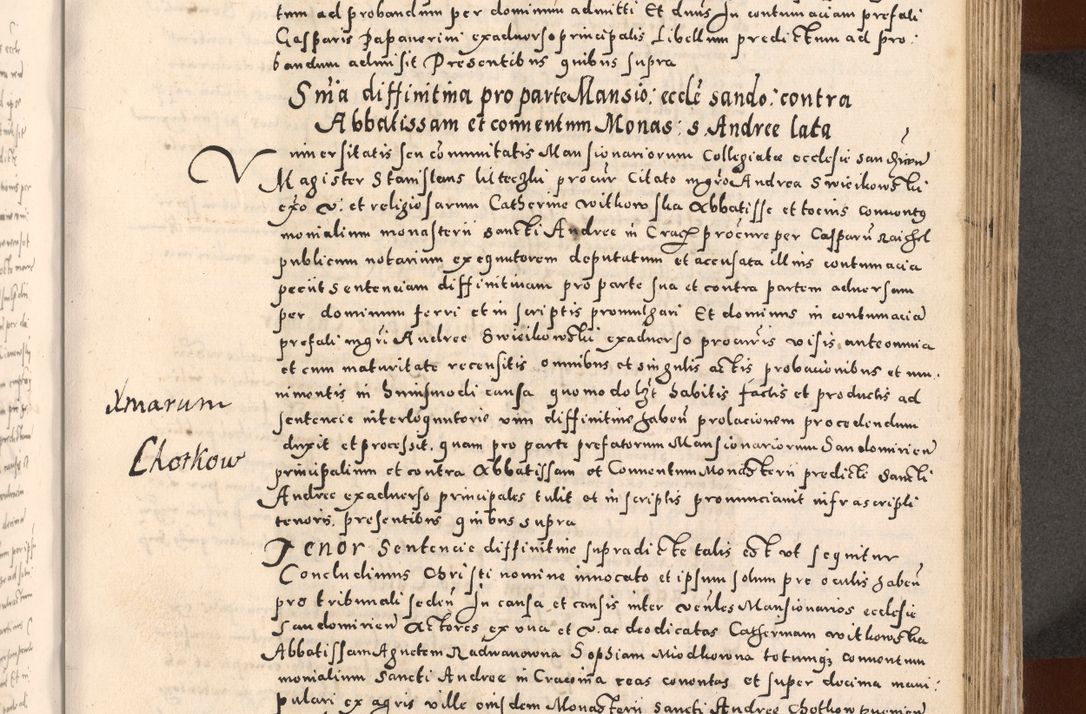 tum ad probandum per dominum admitti Et dnus In contumaciam prefati
Gasparis Papaverini exadverso principalis Libellum predictum ad pro:
bandum admisit Presentibus quibus supra
Snia diffinitiua pro parte Mansio: eccle sando: contra
Abbatissam et conuentum Monas: s. Andree lata
Vniuersitatis seu cõmunitatis Mansionariorum Collegiatæ ecclesie
Magister Stanislaus procur Citato mgro Andrea Swiecikowski
exo v. et religiosarum Catherine witkowska Abbatisse et tocius
monialium monasterii Sancti Andree in Crac procure per Casparũ
publicum notarium exequutorem deputatum et accusata illius contumacia
peciit sentenciam diffinitiuam pro parte sua et contra partem aduersam
per dominum ferri et in scriptis promulgari Et dominus in contumaciã
prefati mgri Andree Swiecikowski exaduerso procuris visis ante omnia
et cum maturitate recensitis omnibus et singulis actis probacionibus et mu
nimentis in huiusmodi causa quomodolzt habitis factis et productis ad
sentencie interloquutorie vim diffinitiue haben prolacionem procedendum
duxit et processit. quam pro parte prefatorum Mansionariorum Sandomirien
principalium et contra Abbatissam et Conuentum Monasterii predicti Sancti
Andree exaduerso principales tulit et in scriptis pronunciauit infrascripti
tenoris. presentibus quibus supra
Xmarum
Chotkow
Tenor Sentencie diffinitiue supradicte talis est vt sequitur
Concludimus Christi nomine inuocato et ipsum solum pre oculis haben
pro tribunali seden In causa et causis inter venles Mansionarios ecclesie
Sandomirien Actores ex vna et v. ac deodicatas Catherinam witkowska
Abbatissam Agnetem Radwanowna Sophiam Miodkowna totumq; conuentum
monialium Sancti Andree in Cracouia reas conuentas et super decima mani:
pulari ex agris ville eiusdem Monasterii sancti Andree Chotkow